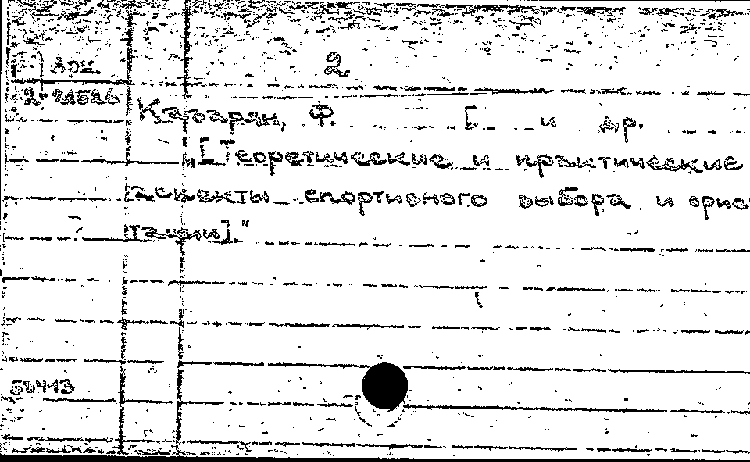 Арм. 2
2-21526
Казарян, Ф. [ и др.
„[Теоретические и практические
аспекты спортивного выбора и орие
тации]."
56413